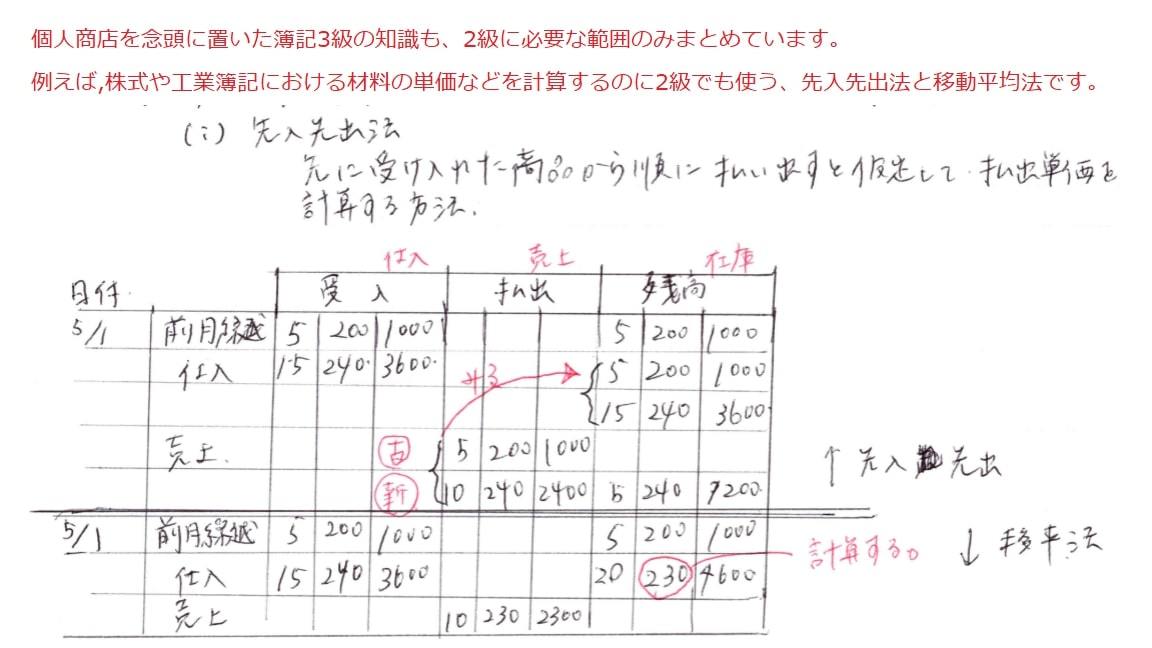 個人商店を念頭に置いた簿記3級の知識も、2級に必要な範囲のみまとめています。
例えば,株式や工業簿記における材料の単価などを計算するのに2級でも使う、先入先出法と移動平均法です。
(i) 先入先出法
先に受け入れた商品から順に払い出すと仮定して、払出単価を
計算する方法.
仕入 売上 在庫
日付 受入 払出 残高
5/1 前月繰越 5 200 1000 5 200 1000
仕入 15 240 3600 5 200 1000
15 240 3600
売上 古 5 200 1000
新 10 240 2400 5 240 1200
↑ 先入先出
5/1 前月繰越 5 200 1000 5 200 1000
計算する。 ↓ 移平法
仕入 15 240 3600 20 230 4600
売上 10 230 2300